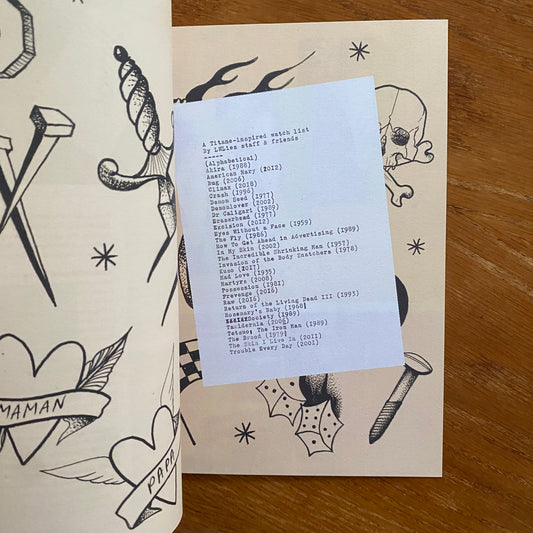 A Titane-inspired watch list
By LWLies staff & friends
-----
(Alphabetical)
Akira (1988)
American Mary (2012)
Bug (2006)
Climax (2018)
Crash (1996)
Demon Seed (1977)
Demonlover (2002)
Dr Caligari (1989)
Eraserhead (1977)
Excision (2012)
Eyes Without a Face (1959)
The Fly (1986)
How To Get Ahead in Advertising (1989)
In My Skin (2002)
The Incredible Shrinking Man (1957)
Invasion of the Body Snatchers (1978)
Kuso (2017)
Mad Love (1935)
Martyrs (2008)
Possession (1981)
Prevenge (2016)
Raw (2016)
Return of the Living Dead III (1993)
Rosemary's Baby (1968)
Society (1989)
Taxidermia (2006)
Tetsuo: The Iron Man (1989)
The Brood (1979)
The Skin I Live In (2011)
Trouble Every Day (2001)
MAMAN
PAPA